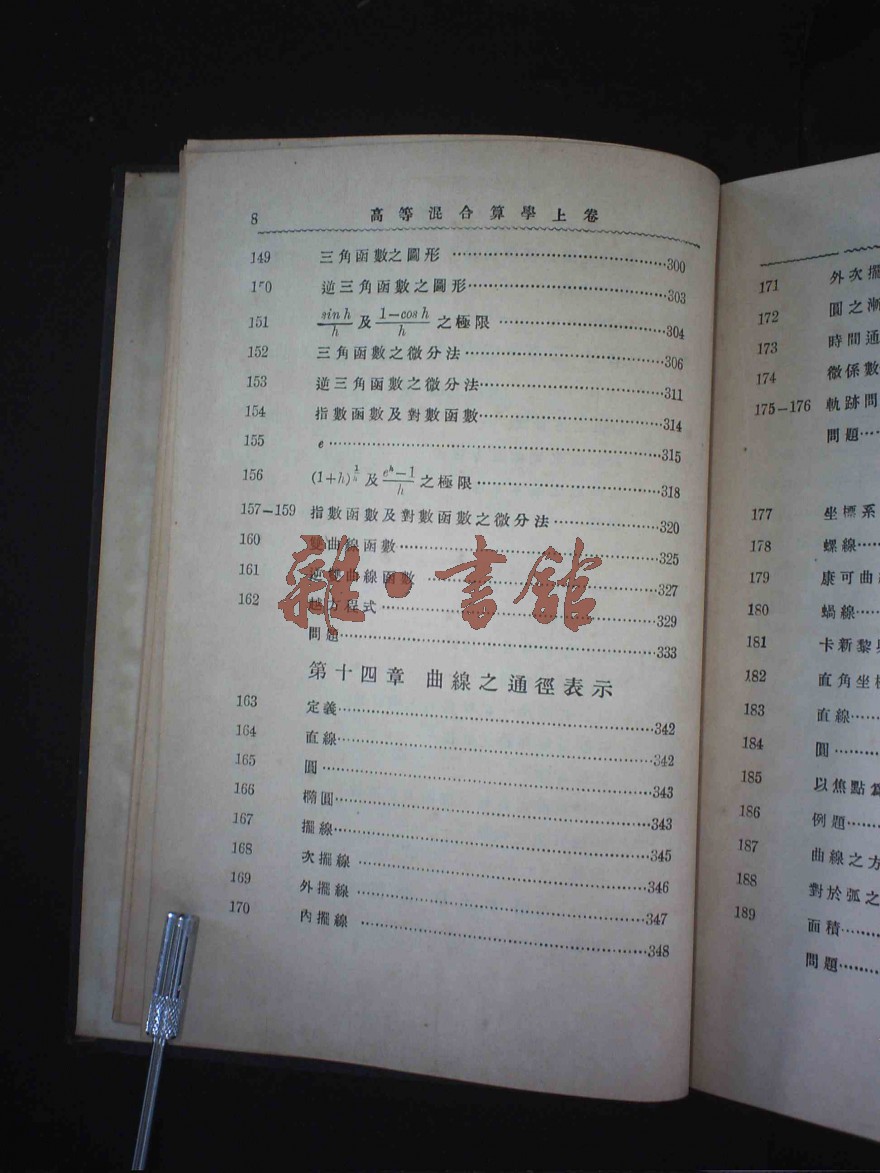 8 高等混合算學上卷
149 三角函數之圖形 ……300
1 0 逆三角函數之圖形……303
151 sin h/h 及 1−cos h/h 之極限 ……304
152 三角函數之微分法……306
153 逆三角函數之微分法……311
154 指數函數及對數函數……314
155 e……315
156 (1+h)^{1/h} 及 e^h−1/h 之極限……318
157–159 指數函數及對數函數之微分法……320
160 雙曲線函數……325
161 逆雙曲線函數 ……327
162 越方程式……329
問題……333
第十四章 曲線之通徑表示
163 定義……342
164 直線……342
165 圓……343
166 橢圓……343
167 擺線……345
168 次擺線 ……346
169 外擺線 ……347
170 內擺線 ……348
雜·書館
171 外次擺
172 圓之漸
173 時間通
174 微係數
175–176 軌跡問
問題……
177 坐標系
178 螺線……
179 康可曲
180 蝸線……
181 卡新黎
182 直角坐標
183 直線……
184 圓……
185 以焦點爲
186 例題……
187 曲線之方
188 對於弧之
189 面積……
問題……